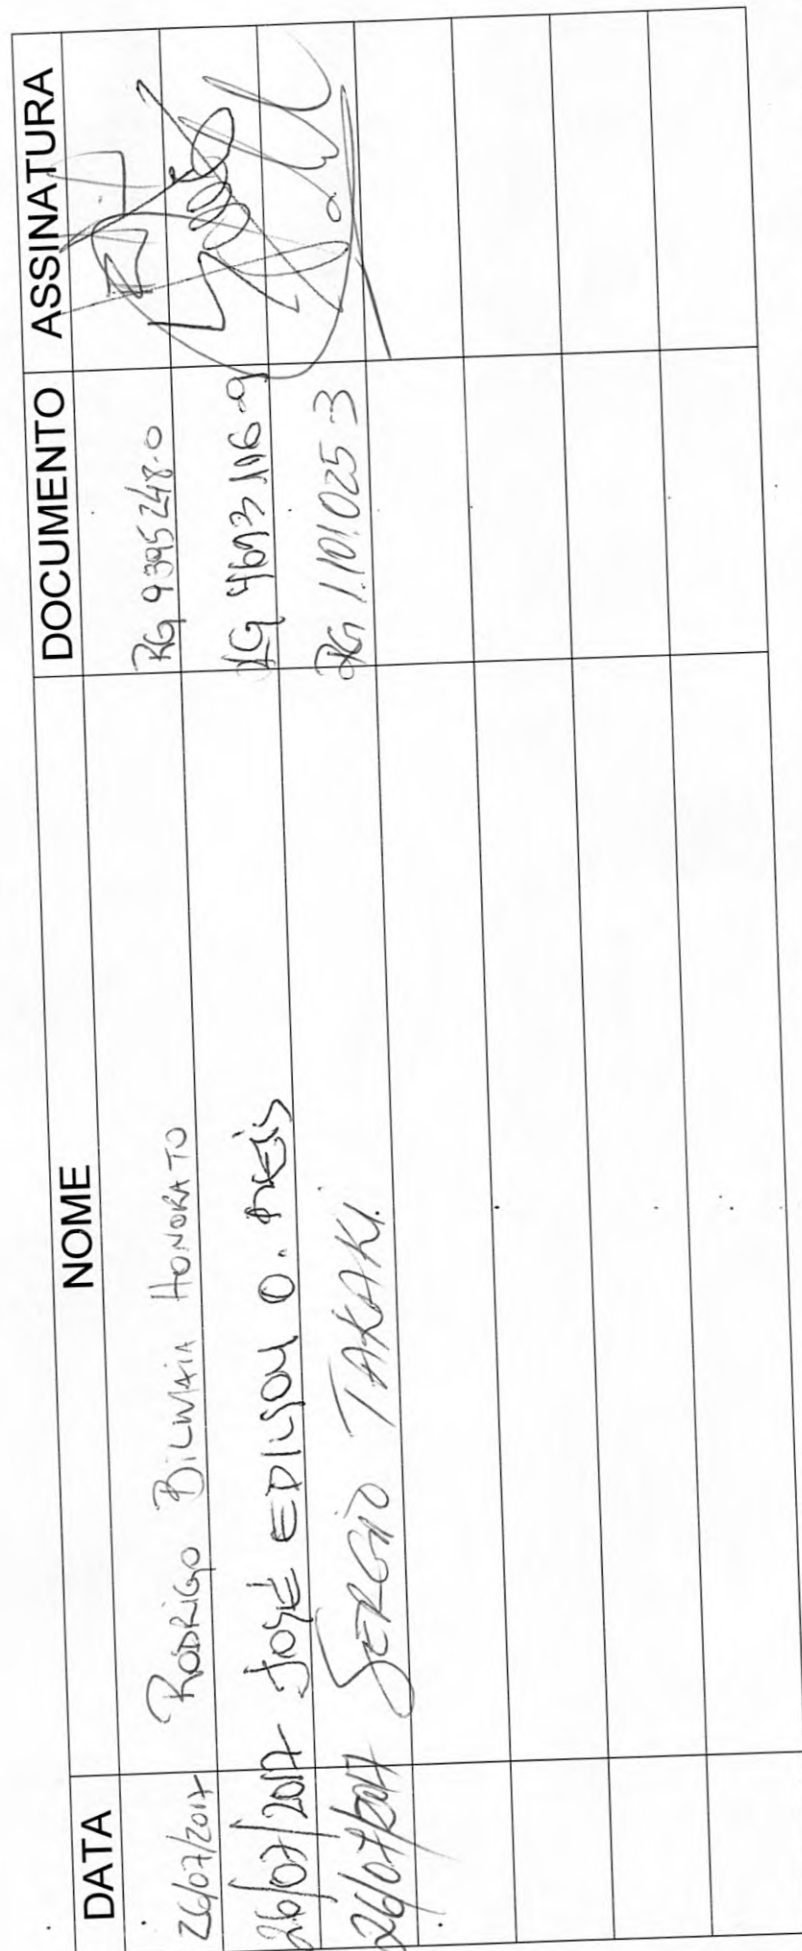 DATA NOME DOCUMENTO ASSINATURA
26/07/2017 RODRIGO BILMAIA HONORATO RG 9395248-0
26/07/2017 JOSÉ EDILSON O. REIS RG
26/07/2017 SERGIO TAKAKI. RG 1.101.025-3